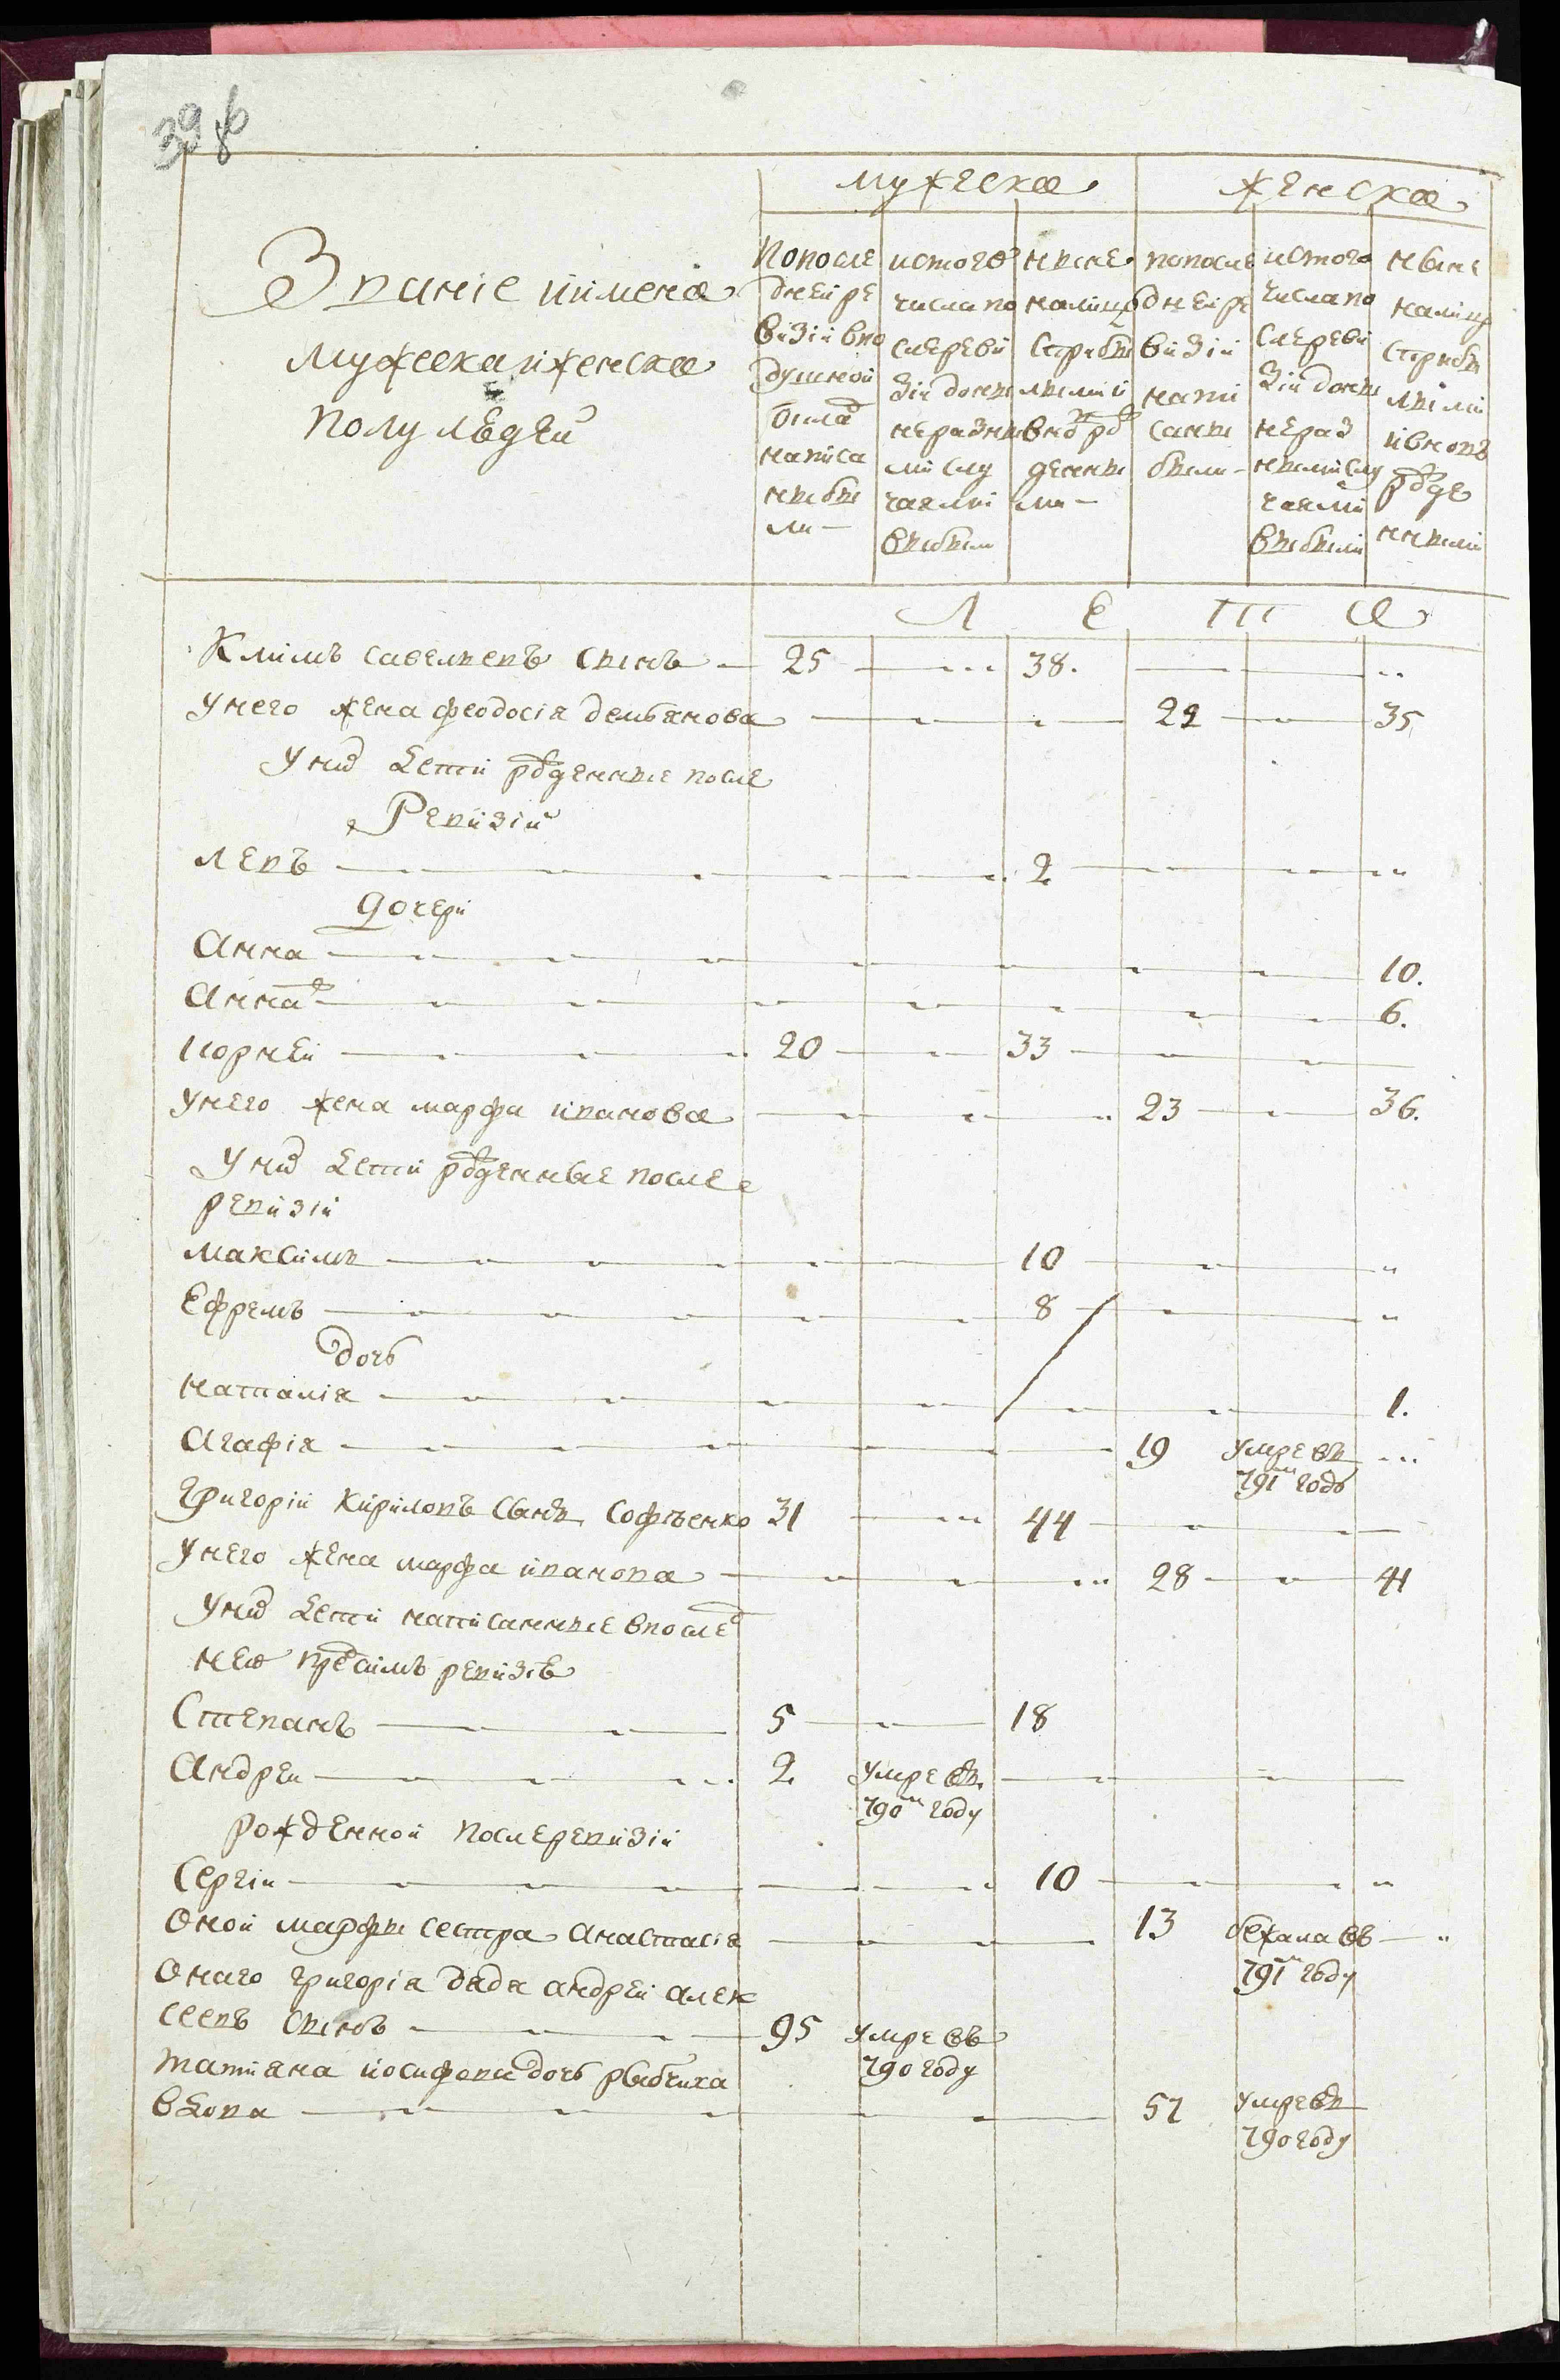 398
мужеска женска
Званіе иимена
мужескаиженска
полу людей
попосле
дней ре
визіи впо
душной
окла
написа
ныбы
ли
истого
числа по
слереви
зіи донын
неразны
ми слу
чаями
выбыли
ныне
налицо
спрыбы
лыми и
вно рож
денны
ми
попосле
дней ре
визіи
напи
саны
были
истого
числа по
слереви
зіи доны
нераз
ными слу
чаями
выбыли
ныне
налицо
спрыбы
лыми
ивновь
рожде
нными
Л Е Т А
Климъ савельевъ сынъ 25 38.
Унего жена феодосіа демьянова 22 35
Уних дети рожденные после
Ревизіи
левъ 2
дочери
Анна 10.
Анна 6.
Корней 20 33
Унего жена марфа иванова 23 36.
Уних дети рожденные после
ревизіи
максимъ 10
Ефремъ 8
дочь
наталія 1.
Агафія 19 умре въ
791м годо
Григорій Кириловъ сынъ Софіенко 31 44
Унего жена марфа иванова 28 41
Уних дети написанные впослед
ней ревизіе
Степанъ 5 18
Андреи 2 умре въ
790м году
рожденной послеревизіи
Сергіи 10
Оной марфы сестра Анастасія 13 бежала въ
791м году
Онаго григоріа дядя андрей алек
сеевъ сынъ 95 умре въ
790 году
татияна иосифова дочь рыбчиха
вдова 57 умре въ
790 году